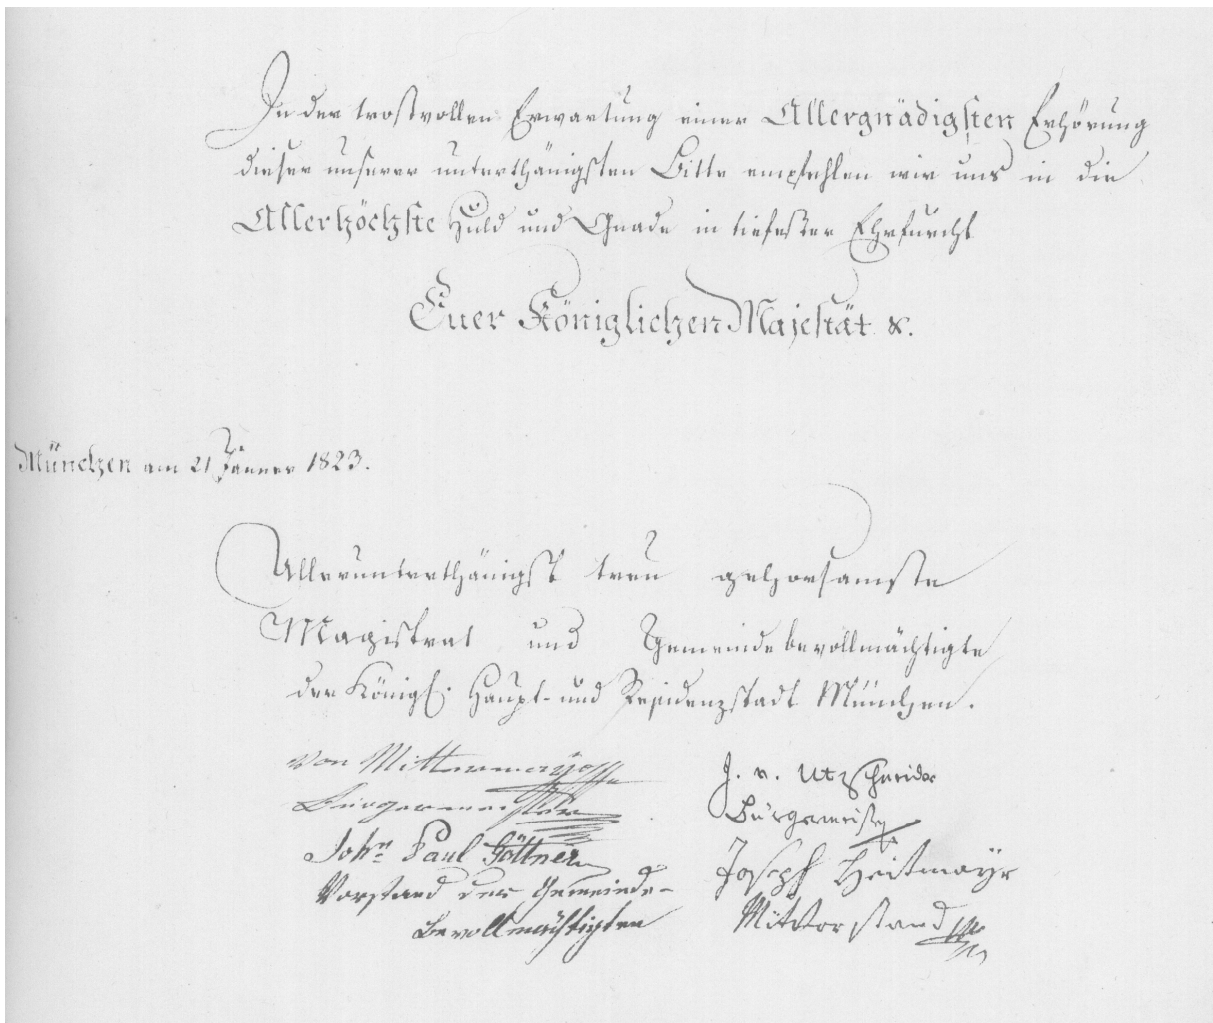 In der trostvollen Erwartung einer Allergnädigsten Erhörung
dieser unserer unterthänigsten Bitte empfehlen wir uns in die
Allerhöchste Huld und Gnade in tiefester Ehrfurcht
Euer Königlichen Majestät &.
München am 21 Jänner 1823.
Allerunterthänigst treu gehorsamste
Magistrat und Gemeindebevollmächtigte
der Königl: Haupt- und Residenzstadt München.
von Mittermayr
Bürgermeister
J. v. Utzschneider
Bürgermeister
John Paul Göttner
Vorstand der Gemeinde-
Bevollmächtigten
Joseph Heitmayr
Mitvorstand